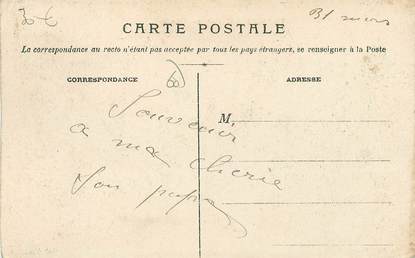 CARTE POSTALE
La correspondance au recto n'étant pas acceptée par tous les pays étrangers, se renseigner à la Poste
CORRESPONDANCE
ADRESSE
M.
Souvenir
a ma cherie
Son papa